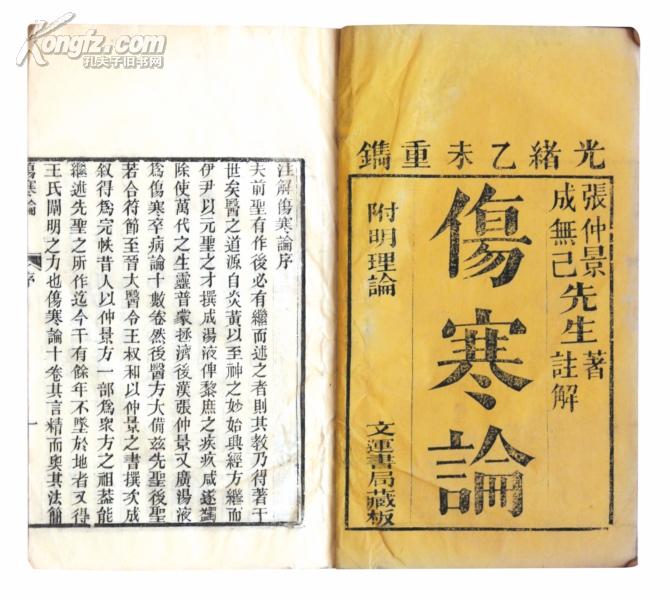 光緒乙未重鐫
張仲景
成無己
先生
著
註解
傷寒論
附明理論
文運書局藏板
注解傷寒論序
夫前聖有作後必有繼而述之者則其教乃得著于
世矣醫之道源自炎黃以至神之妙始興經方繼而
伊尹以元聖之才撰成湯液俾黎庶之疾疚咸遂蠲
除使萬代之生靈普蒙拯濟後漢張仲景又廣湯液
爲傷寒卒病論十數卷然後醫方大備茲先聖後聖
若合符節至晉大醫令王叔和以仲景之書撰次成
敘得爲完帙昔人以仲景方一部爲衆方之祖葢能
繼述先聖之所作迄今千有餘年不墜於地者又得
王氏闡明之力也傷寒論十卷其言精而奧其法簡
傷寒論 序 一
Kongfz.com
孔夫子旧书网